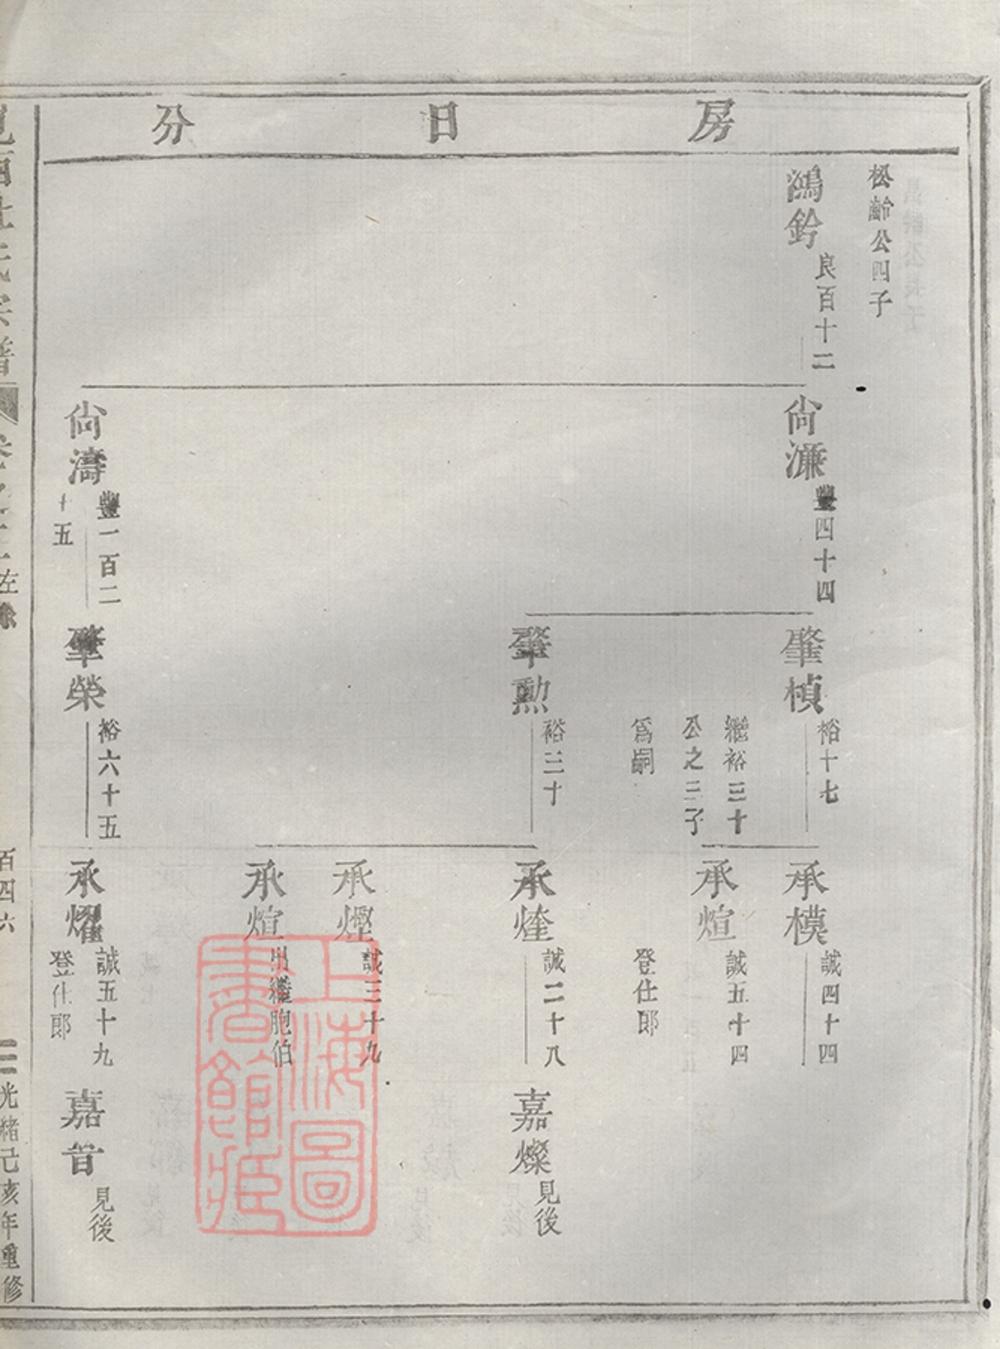 房日分
松齡公四子
鴻鈐
良百十二
尙濂
豐四十四
肇楨
裕十七
繼裕三十
公之三子
爲嗣
承模
誠四十四
承煊
誠五十四
登仕郎
肇勲
裕三十
承煃
誠二十八
嘉燦
見後
承煙
誠三十九
承煊
出繼胞伯
尙濤
豐一百二
十五
肇榮
裕六十五
承燿
誠五十九
登仕郎
嘉音
見後
上海圖
書館藏
氏宗譜
左
百四六
光緒己亥年重修